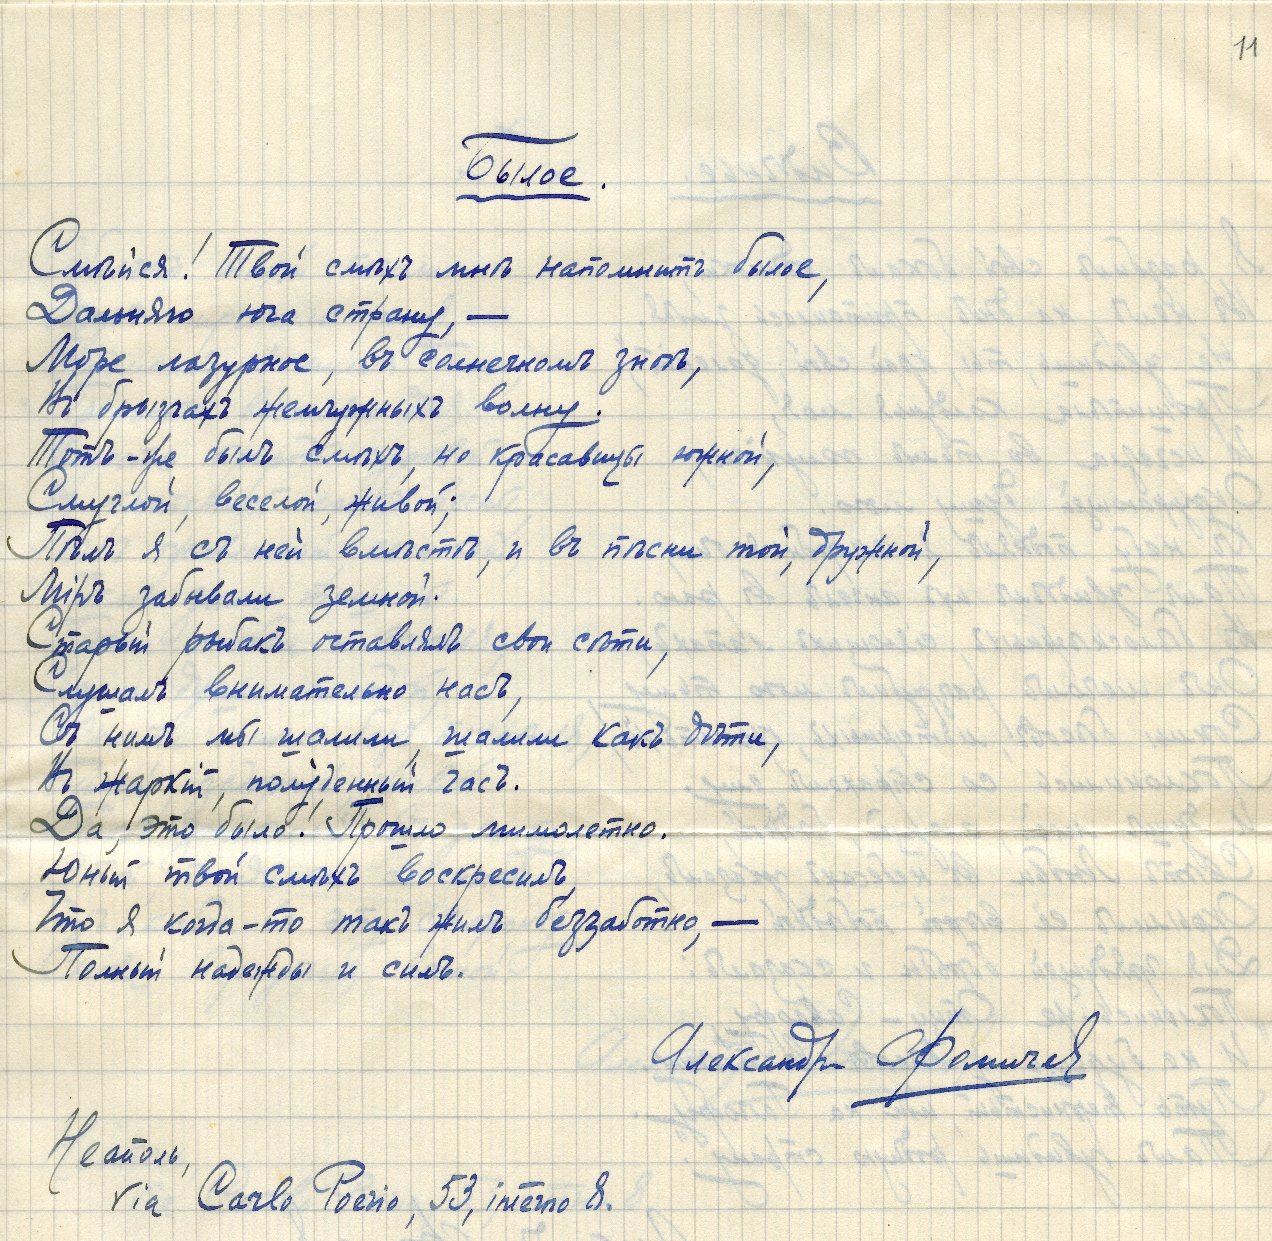 11
Былое.
Смѣйся! Твой смѣхъ мнѣ напомнитъ былое,
Дальняго юга страну, —
Море лазурное, въ солнечномъ зноѣ,
Въ брызгахъ жемчужныхъ волну.
Тотъ-же былъ смѣхъ, но красавицы южной,
Смуглой, веселой, живой;
Пѣлъ я съ ней вмѣстѣ, и въ пѣсни той, дружной,
Мiръ забывали земной.
Старый рыбакъ оставлялъ свои сѣти,
Слушалъ внимательно насъ,
Съ нимъ мы шалили, шалили какъ дѣти,
Въ жаркiй, полуденный часъ.
Да, это было! Прошло мимолетно.
Юный твой смѣхъ воскресилъ,
Что я когда-то такъ жилъ беззаботно, —
Полный надежды и силъ.
Александръ Фомичев
Неаполь,
via Carlo Poerio, 53, interno 8.